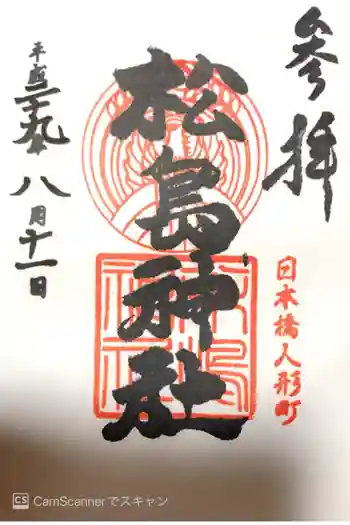 参拝
日本橋人形町
松島神社
平成二十九年八月十一日
CS CamScannerでスキャン